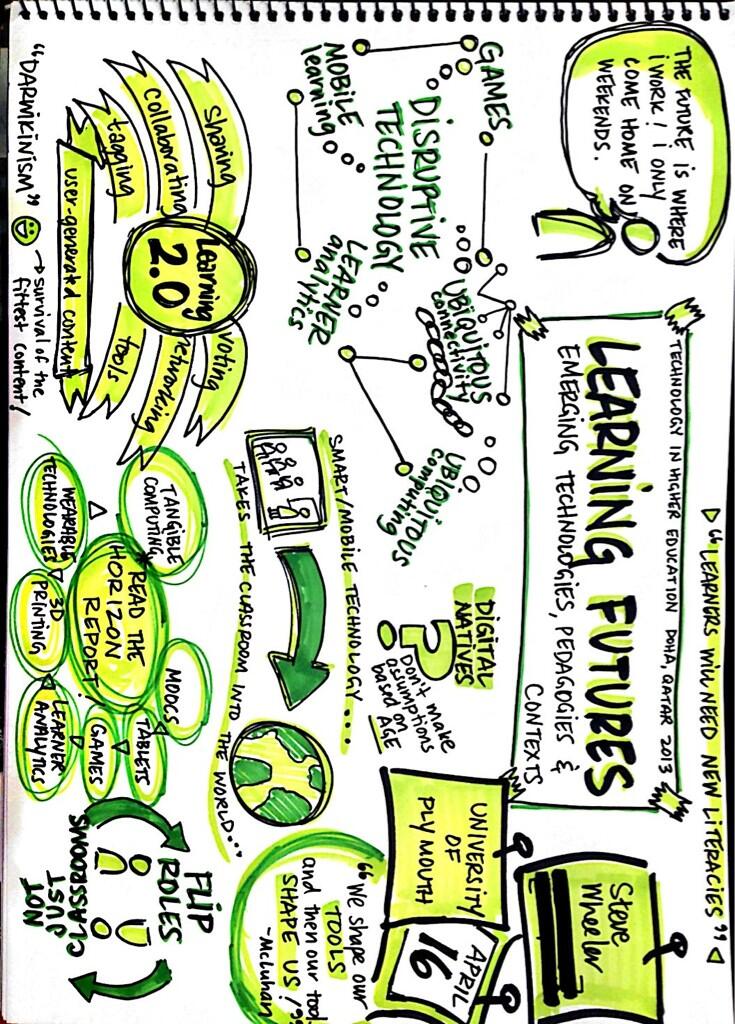 "LEARNERS WILL NEED NEW LITERACIES"
THE FUTURE IS WHERE
I WORK! I ONLY
COME HOME ON
WEEKENDS.
TECHNOLOGY IN HIGHER EDUCATION DOHA, QATAR 2013
LEARNING FUTURES
EMERGING TECHNOLOGIES, PEDAGOGIES &
CONTEXTS
Steve
Wheeler
UNIVERCITY
OF
PLYMOUTH
APRIL
16
GAMES
DISRUPTIVE
TECHNOLOGY
MOBILE
learning
UBIQUITOUS
connectivity
LEARNER
analytics
UBIQUITOUS
computing
DIGITAL
NATIVES
?
Don't make
assumptions
based on
AGE
"We shape our
TOOLS
and then our tool
SHAPE US!"
-McLuhan
SMART/MOBILE TECHNOLOGY....
TAKES THE CLASSROOM INTO THE WORLD...
sharing
collaborating
tagging
Learning
2.0
voting
networking
tools
user-generated content
"DARWIKINISM"
survival of the
fittest content!
TANGIBLE
COMPUTING
*READ THE
HORIZON
REPORT!
MOOCS
WEARABLE
TECHNOLOGIES
3D
PRINTING
TABLETS
GAMES
LEARNER
ANALYTICS
FLIP
ROLES
NOT
JUST
CLASSROOMS